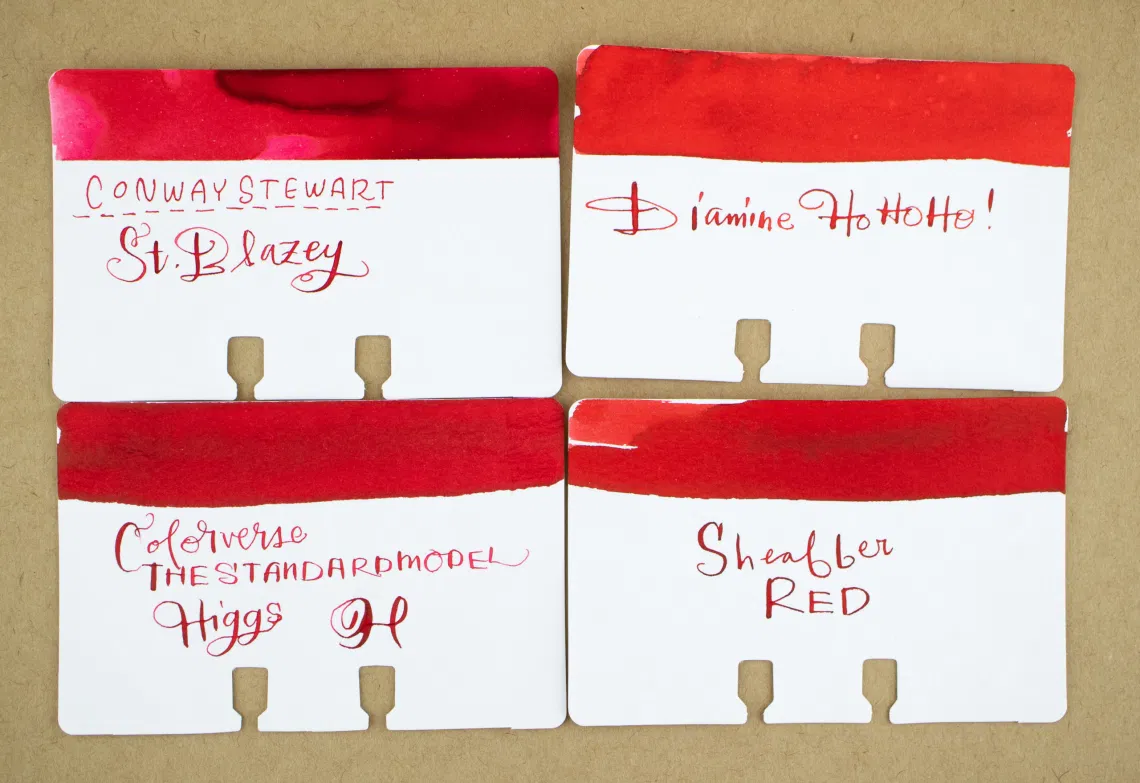 CONWAY STEWART
St. Blazey
Diamine Ho Ho Ho!
Colorverse
THE STANDARD MODEL
Higgs H
Sheaffer
RED